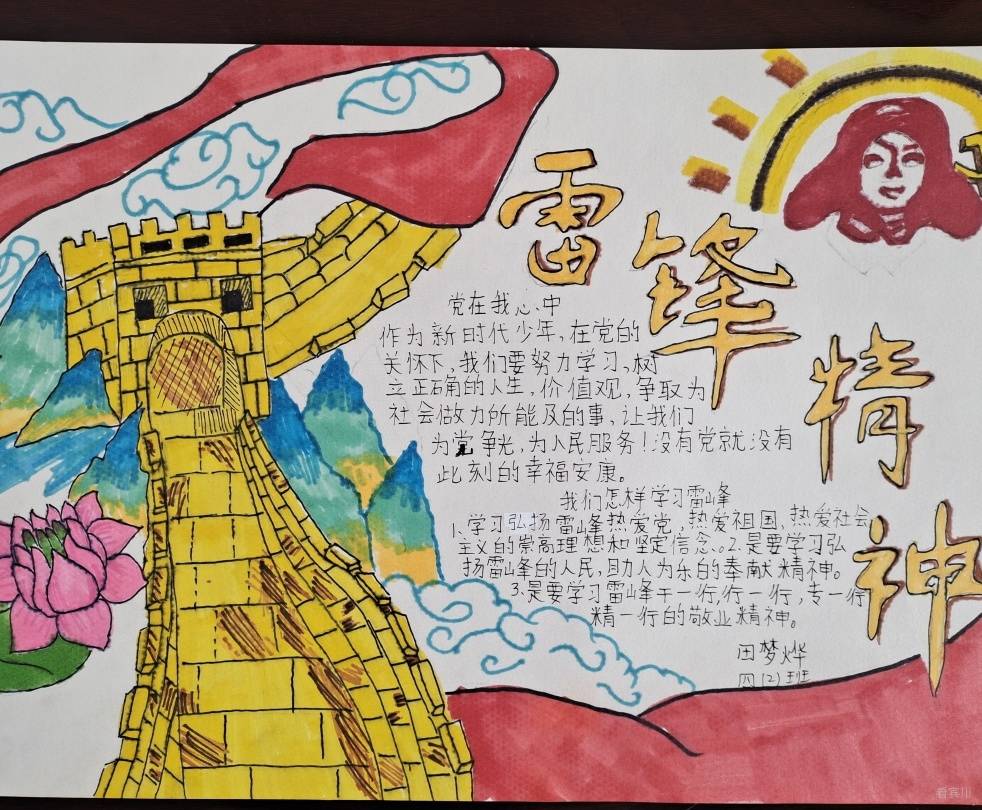 雷锋精神
党在我心中
作为新时代少年,在党的
关怀下,我们要努力学习,树
立正确的人生,价值观,争取为
社会做力所能及的事,让我们
为党争光,为人民服务!没有党就没有
此刻的幸福安康。
我们怎样学习雷峰
1.学习弘扬雷峰热爱党,热爱祖国、热爱社会
主义的崇高理想和坚定信念。2.是要学习弘
扬雷峰的人民,助人为乐的奉献精神。
3.是要学习雷峰干一行,行一行,专一行
精一行的敬业精神。
田梦烨
四(2)班
看宾川